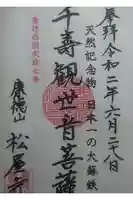 奉拝 令和二年六月二十八日
天然記念物 日本一の大蘇鉄
千壽観世音菩薩
康徳山 松尾寺